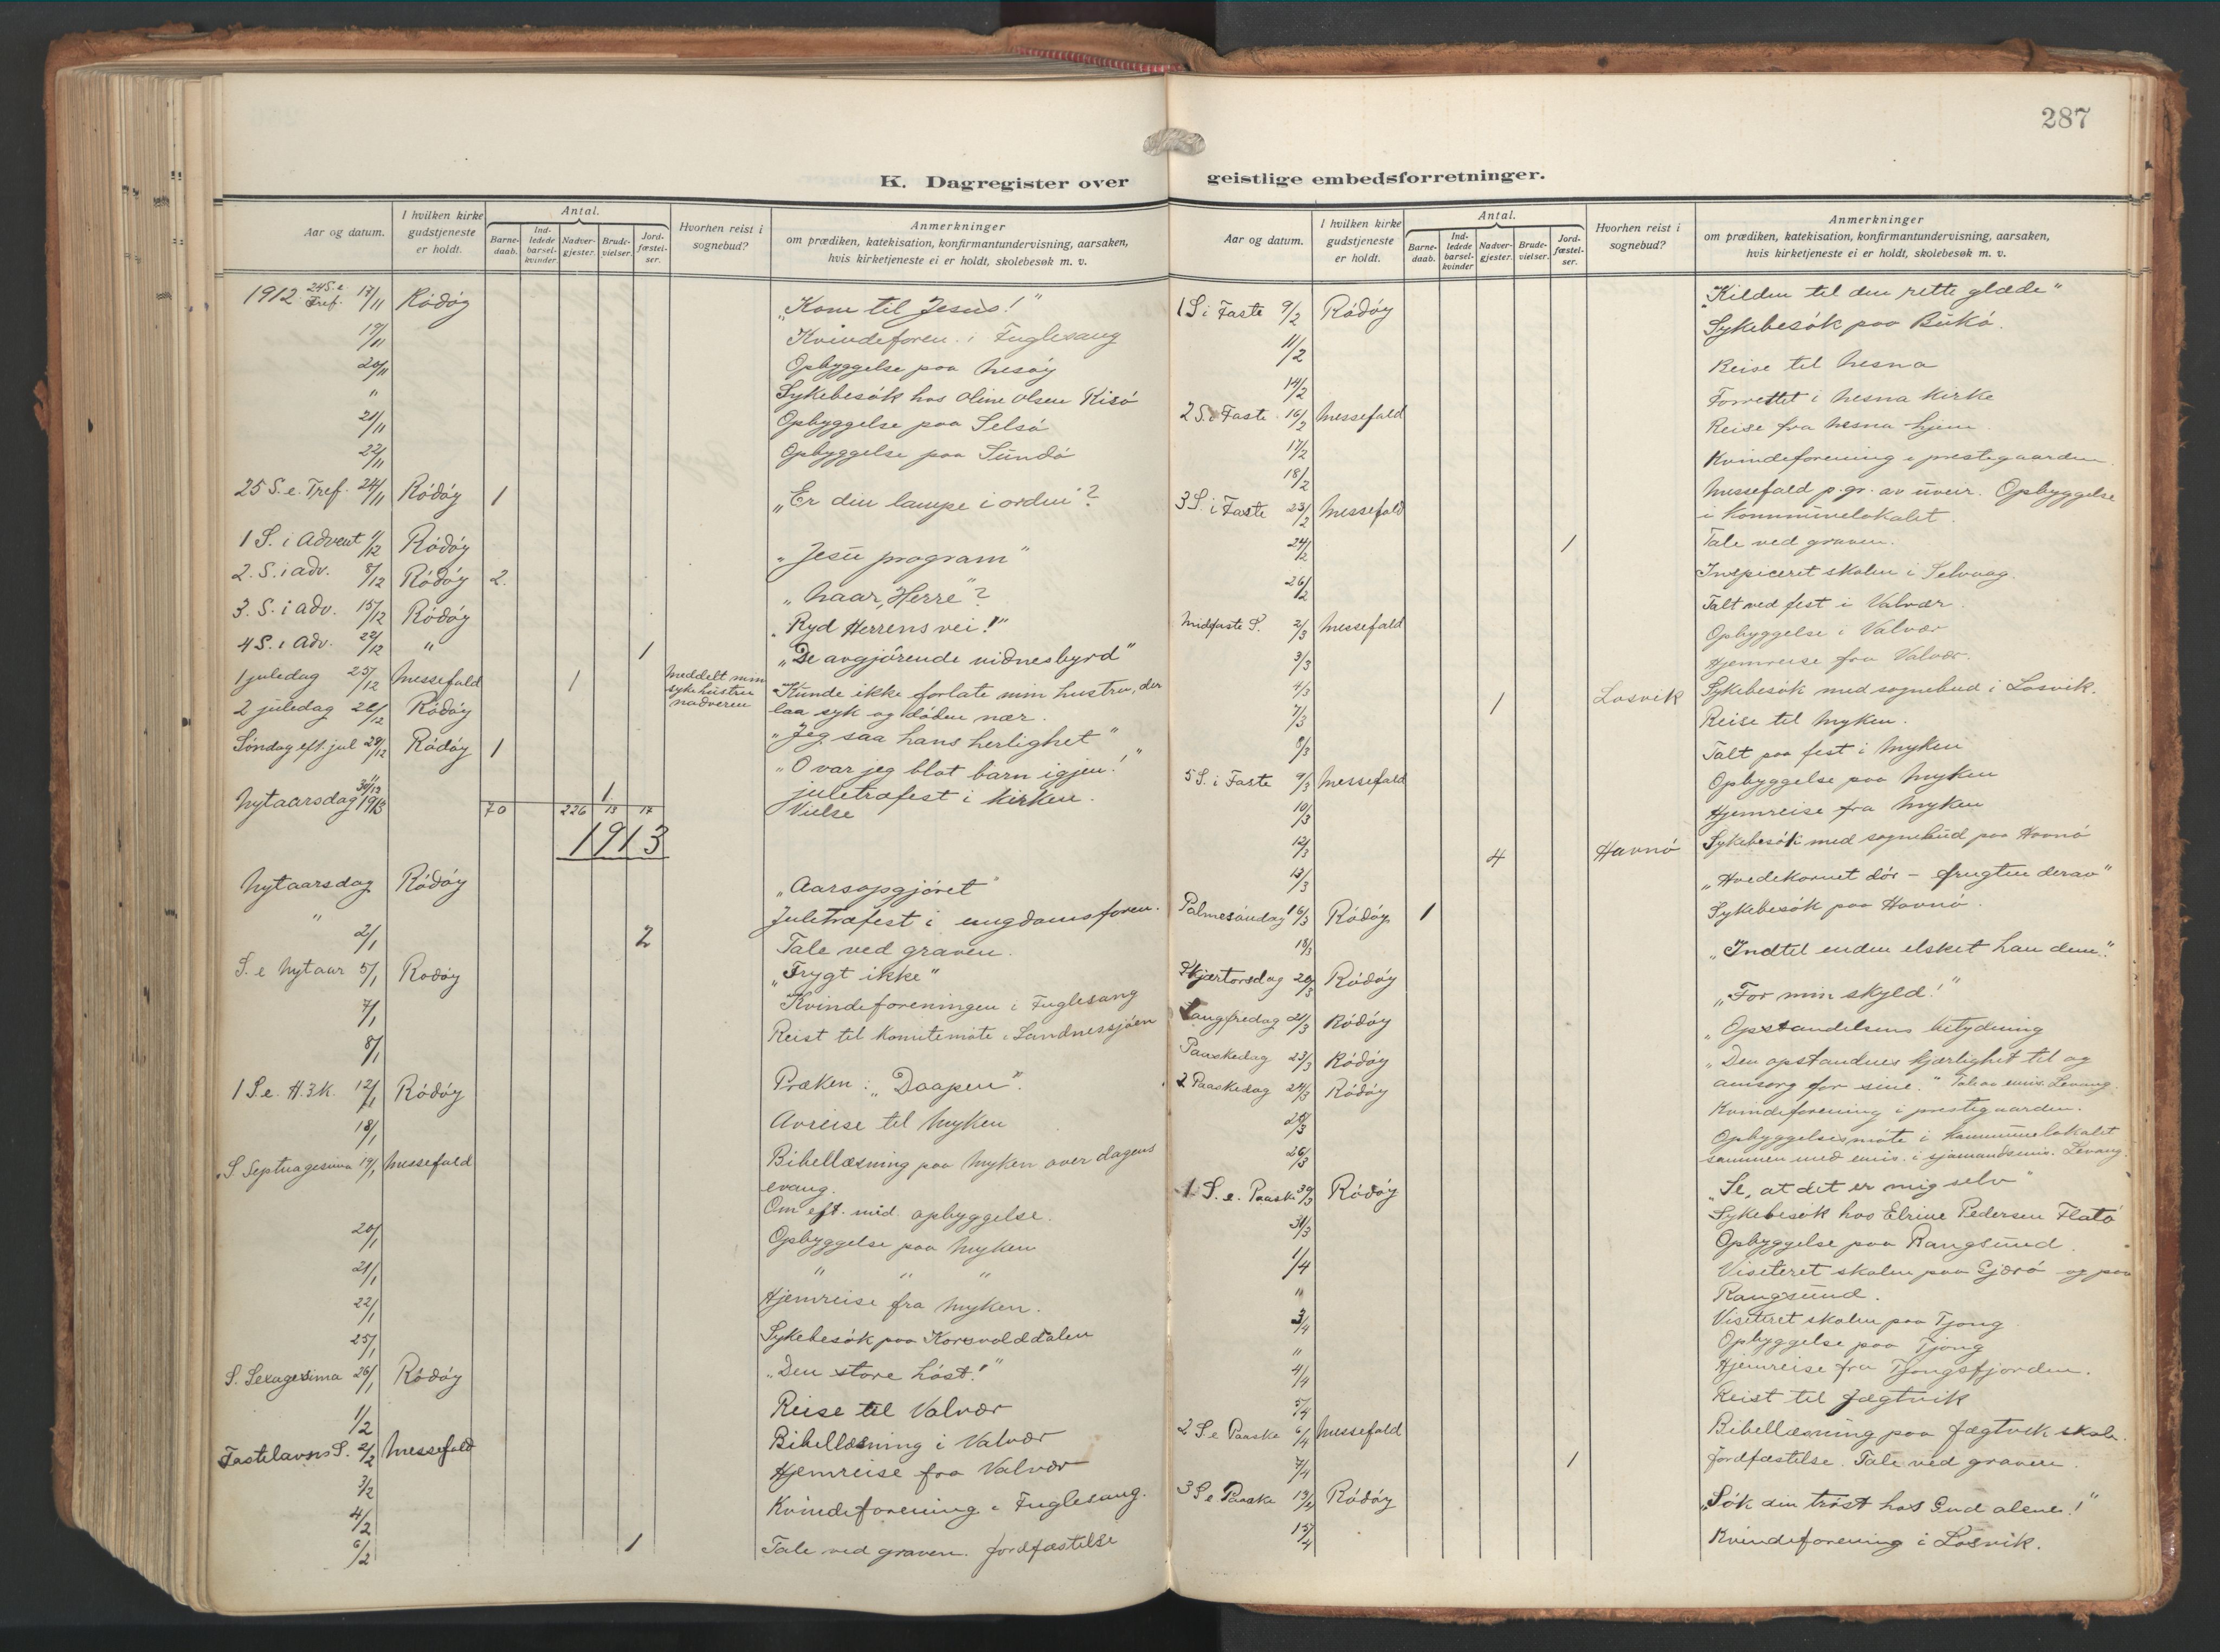 287
K. Dagregister over geistlige embedsforretninger.
Aar og datum. I hvilken kirke gudstjeneste er holdt. Antal. Barne-daab. Ind-ledede barsel-kvinder. Nadver-gjester. Brude-vielser. Jord-fæstel-ser. Hvorhen reist i sognebud? Anmerkninger om prædiken, katekisation, konfirmantundervisning, aarsaken, hvis kirketjeneste ei er holdt, skolebesøk m. v.
1912 24 S. e. Tref. 17/11 Rödöy „Kom til Jesus!"
19/11 Kvindeforen. i Fuglesang
20/11 Opbyggelse paa Nesöy
" Sykebesök hos Oline Olsen Kisö
21/11 Opbyggelse paa Selsö
22/11 Opbyggelse paa Sundö
25 S. e. Tref. 24/11 Rödöy 1 „Er din lampe i orden"?
1 S. i Advent 1/12 Rödöy „Jesu program"
2. S. i adv. 8/12 Rödöy 2. „Naar, Herre"?
3. S. i adv. 15/12 Rödöy „Ryd Herrens vei!"
4 S. i adv. 22/12 " 1 „De avgjörende vidnesbyrd"
1 juledag 25/12 Messefald 1 Meddelt min syke hustru nadveren Kunde ikke forlate min hustru, der
laa syk og döden nær.
2 juledag 26/12 Rödöy „Jeg saa hans herlighet"
Söndag eft. jul 29/12 Rödöy 1 „O var jeg blot barn igjen!"
juletræfest i kirken.
1 Vielse
Nytaarsdag 1913
70 226 13 17
1913
Nytaarsdag Rödöy „Aarsopgjöret"
" Juletræfest i ungdomsforen.
2/1 2 Tale ved graven.
S. e Nytaar 5/1 Rödöy „Frygt ikke"
7/1 Kvindeforeningen i Fuglesang
8/1 Reist til komitemöte i Sandnessjöen
1 S. e. H. 3 K. 12/1 Rödöy Præken: „Daapen".
18/1 Avreise til Myken
S. Septuagesima 19/1 Messefald Bibellæsning paa Myken over dagens
evang.
Om eft. mid. opbyggelse.
20/1 Opbyggelse paa Myken
21/1 " " "
22/1 Hjemreise fra Myken.
25/1 Sykebesök paa Korsvolddalen
S. Sexagesima 26/1 Rödöy „Den store höst!"
1/2 Reise til Valvær
Fastelavns S. 2/2 Messefald Bibellæsning i Valvær
3/2 Hjemreise fra Valvær
4/2 Kvindeforening i Fuglesang.
6/2 1 Tale ved graven. Jordfæstelse
Aar og datum. I hvilken kirke gudstjeneste er holdt. Antal. Barne-daab. Ind-ledede barsel-kvinder Nadver-gjester. Brude-vielser. Jord-fæstel-ser. Hvorhen reist i sognebud? Anmerkninger om prædiken, katekisation, konfirmantundervisning, aarsaken, hvis kirketjeneste ei er holdt, skolebesøk m. v.
1 S. i Faste 9/2 Rödöy „Kilden til den rette glæde"
Sykebesök paa Bukö.
11/2 Reise til Nesna
14/2 Forrettet i Nesna kirke
2 S. i Faste 16/2 Messefald Reise fra Nesna hjem
17/2 Kvindeforening i prestegaarden.
18/2 Messefald p. gr. av uveir. Opbyggelse
3 S. i Faste 23/2 Messefald i Kommunelokalet.
24/2 1 Tale ved graven.
26/2 Inspiceret skolen i Selvaag.
Talt ved fest i Valvær
Midfaste S. 2/3 Messefald Opbyggelse i Valvær
3/3 Hjemreise fra Valvær.
4/3 1 Losvik Sykebesök med sognebud i Losvik.
7/3 Reise til Myken.
8/3 Talt paa fest i Myken
5 S. i Faste 9/3 Messefald Opbyggelse paa Myken
10/3 Hjemreise fra Myken
12/3 4 Havnö Sykebesök med sognebud paa Havnö
13/3 „Hvedekornet dör - frugten derav"
Palmesöndag 16/3 Rödöy 1 Sykebesök paa Havnö.
18/3 „Indtil enden elsket han dem".
Skjærtorsdag 20/3 Rödöy „For min skyld!"
Langfredag 21/3 Rödöy „Opstandelsens betydning
Paaskedag 23/3 Rödöy „Den opstandnes kjærlighet til og
2 Paaskedag 24/3 Rödöy omsorg for sine." Tale av emis. Levang.
25/3 Kvindeforening i prestegaarden.
26/3 Opbyggelsesmöte i Kommunelokalet
sammen med emis. i sjömandsmis. Levang.
1 S. e. Paaske 30/3 Rödöy „Se, at det er mig selv"
31/3 Sykebesök hos Elrine Pedersen Flatö
1/4 Opbyggelse paa Rangsund.
" Visiteret skolen paa Gjærö og paa
Rangsund.
3/4 Visiteret skolen paa Tjong
" Opbyggelse paa Tjong
4/4 Hjemreise fra Tjongsfjorden.
5/4 Reist til Jægtvik
2 S e Paaske 6/4 Messefald Bibellæsning paa Jægtvik skole.
7/4 1 Jordfæstelse. Tale ved graven.
3 S e Paaske 13/4 Rödöy „Sök din tröst hos Gud alene!"
15/4 Kvindeforening i Losvik.